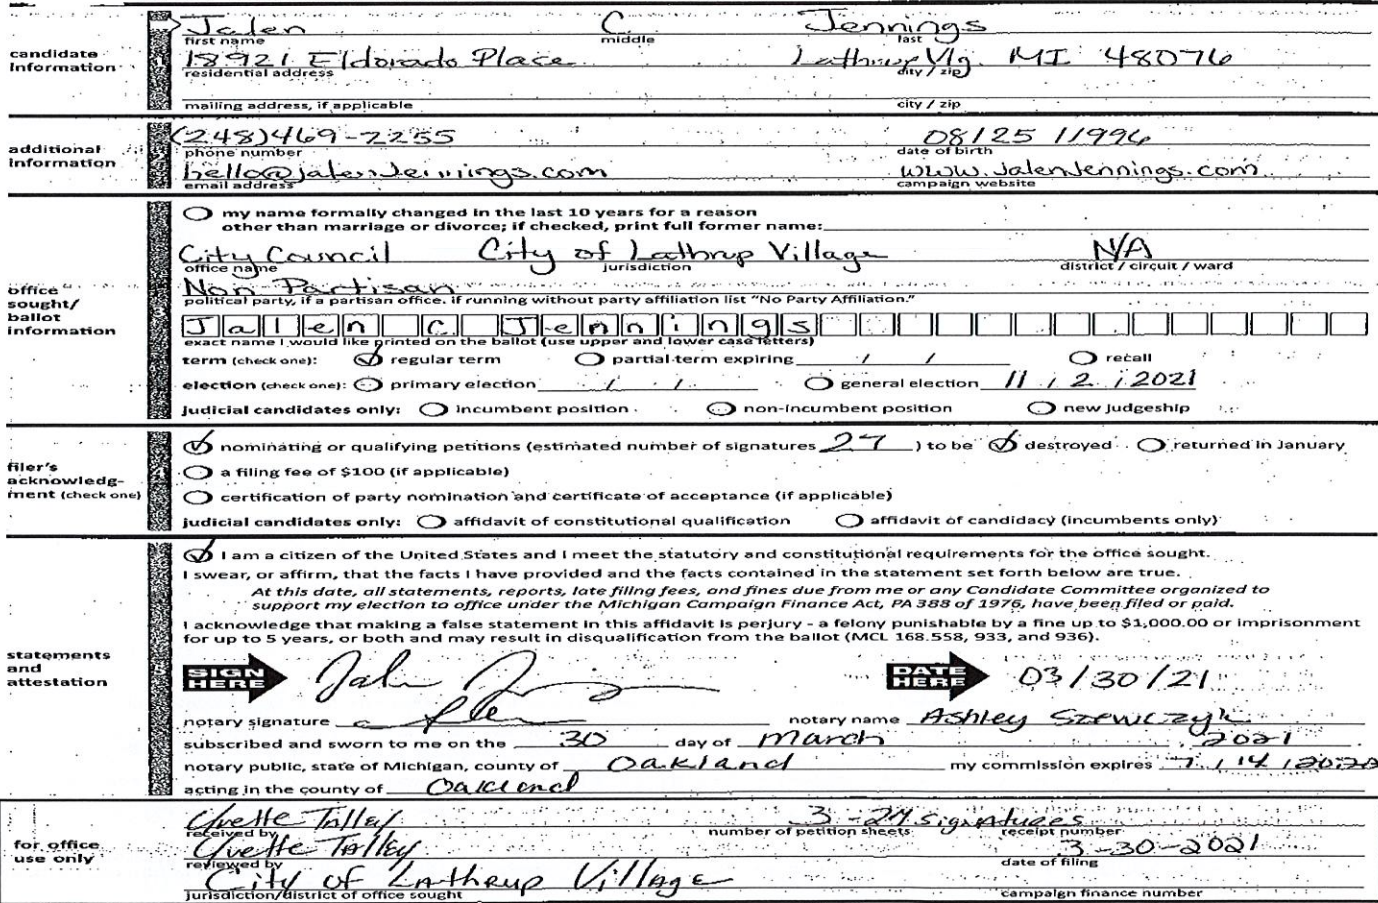 Jalen C. Jennings
first name middle last
candidate information
1
18921 Eldorado Place Lathrup Vlg. MI 48076
residential address city / zip
mailing address, if applicable city / zip
additional information
2
(248)469-2255 08/25/1996
phone number date of birth
hello@jalenJennings.com www.JalenJennings.com
email address campaign website
my name formally changed in the last 10 years for a reason
other than marriage or divorce; if checked, print full former name:
City Council City of Lathrup Village N/A
office name jurisdiction district / circuit / ward
office sought/ ballot information
3
Non-Partisan
political party, if a partisan office. if running without party affiliation list "No Party Affiliation."
Jalen C Jennings
exact name I would like printed on the ballot (use upper and lower case letters)
term (check one): regular term partial term expiring / / recall
election (check one): primary election / / general election 11 / 2 / 2021
judicial candidates only: incumbent position non-incumbent position new judgeship
filer's acknowledg-ment (check one)
4
nominating or qualifying petitions (estimated number of signatures 27 ) to be destroyed returned in January
a filing fee of $100 (if applicable)
certification of party nomination and certificate of acceptance (if applicable)
judicial candidates only: affidavit of constitutional qualification affidavit of candidacy (incumbents only)
statements and attestation
5
I am a citizen of the United States and I meet the statutory and constitutional requirements for the office sought.
I swear, or affirm, that the facts I have provided and the facts contained in the statement set forth below are true.
At this date, all statements, reports, late filing fees, and fines due from me or any Candidate Committee organized to
support my election to office under the Michigan Campaign Finance Act, PA 388 of 1976, have been filed or paid.
I acknowledge that making a false statement in this affidavit is perjury - a felony punishable by a fine up to $1,000.00 or imprisonment
for up to 5 years, or both and may result in disqualification from the ballot (MCL 168.558, 933, and 936).
SIGN HERE DATE HERE 03/30/21
notary signature notary name Ashley Szewczyk
subscribed and sworn to me on the 30 day of March , 2021
notary public, state of Michigan, county of Oakland my commission expires 7 / 14 /
acting in the county of Oakland
for office use only
Yvette Talley 3 - 24 signatures
received by number of petition sheets receipt number
Yvette Talley 3-30-2021
reviewed by date of filing
City of Lathrup Village
jurisdiction/district of office sought campaign finance number